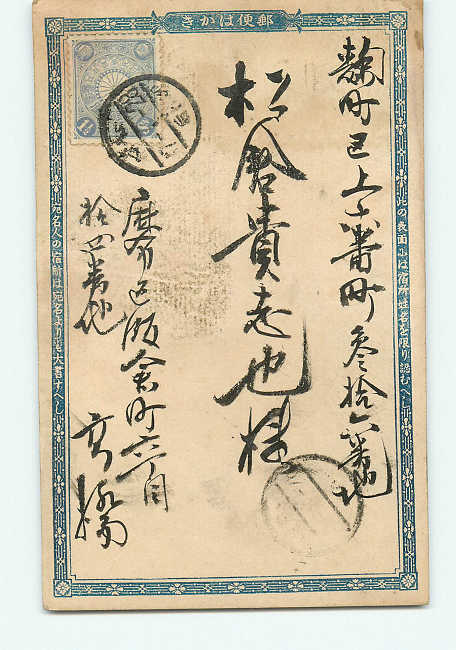 郵便はがき
此の表面には宿所姓名を限り認むへし
麹町区上六番町参拾六番地
松倉貴志也様
麻布区飯倉町六丁目
拾四番地
高橋
宛名人の宿所は宛名より大書すへし